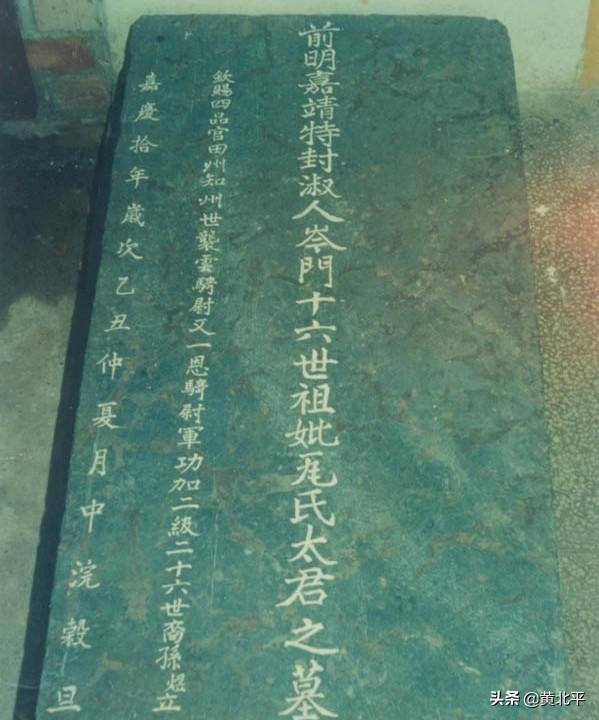 前明嘉靖特封淑人岑門十六世祖妣瓦氏太君之墓
欽賜四品官田州知州世襲雲騎尉又一恩騎尉軍功加二級二十六世裔孫煜立
嘉慶拾年歲次乙丑仲夏月中浣穀旦
头条 @黄北平